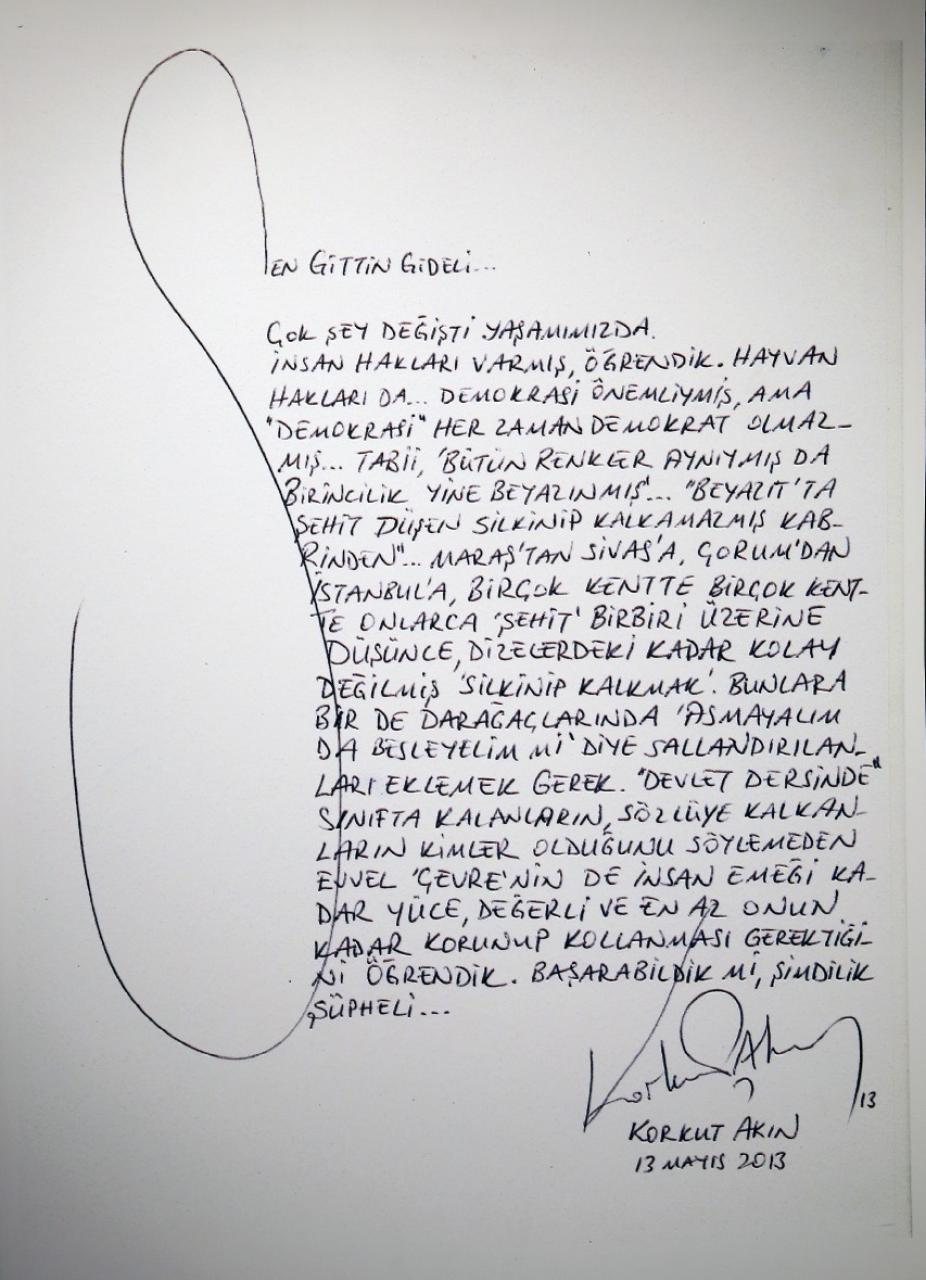 SEN GİTTİN GİDELİ...
ÇOK ŞEY DEĞİŞTİ YAŞAMIMIZDA.
İNSAN HAKLARI VARMIŞ, ÖĞRENDİK. HAYVAN
HAKLARI DA... DEMOKRASİ ÖNEMLİYMİŞ, AMA
"DEMOKRASİ" HER ZAMAN DEMOKRAT OLMAZ-
MIŞ... TABİİ, 'BÜTÜN RENKLER AYNIYMIŞ DA
BİRİNCİLİK YİNE BEYAZINMIŞ'... "BEYAZIT'TA
ŞEHİT DÜŞEN SİLKİNİP KALKAMAZMIŞ KAB-
RİNDEN"... MARAŞ'TAN SİVAS'A, ÇORUM'DAN
İSTANBUL'A, BİRÇOK KENTTE BİRÇOK KENT-
TE ONLARCA 'ŞEHİT' BİRBİRİ ÜZERİNE
DÜŞÜNCE, DİZELERDEKİ KADAR KOLAY
DEĞİLMİŞ 'SİLKİNİP KALKMAK'. BUNLARA
BİR DE DARAĞAÇLARINDA 'ASMAYALIM
DA BESLEYELİM Mİ' DİYE SALLANDIRILAN-
LARI EKLEMEK GEREK. "DEVLET DERSİNDE"
SINIFTA KALANLARIN, SÖZLÜYE KALKAN-
LARIN KİMLER OLDUĞUNU SÖYLEMEDEN
EVVEL 'ÇEVRE'NİN DE İNSAN EMEĞİ KA-
DAR YÜCE, DEĞERLİ VE EN AZ ONUN
KADAR KORUNUP KOLLANMASI GEREKTİĞİ-
Nİ ÖĞRENDİK. BAŞARABİLDİK Mİ, ŞİMDİLİK
ŞÜPHELİ...
Korkut Akın
13
KORKUT AKIN
13 MAYIS 2013